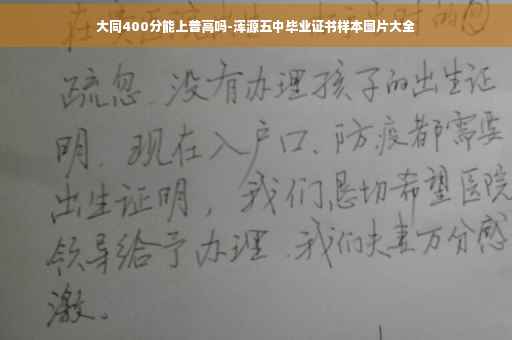 大同400分能上普高吗-浑源五中毕业证书样本图片大全
疏忽、没有办理孩子的出生证
明、现在入户口、防疫都需要
出生证明，我们恳切希望医院
领导给予办理、我们夫妻万分感
激。